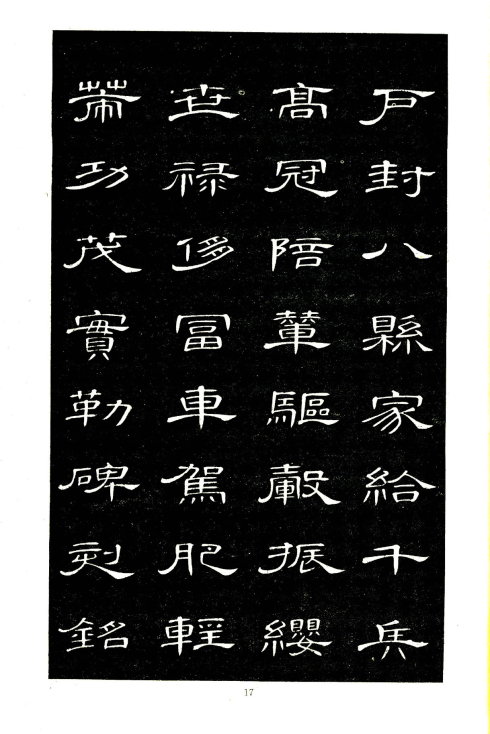 戶封八縣家給千兵
髙冠陪輦驅轂振纓
世祿侈冨車駕肥輕
策功茂實勒碑刻銘
17